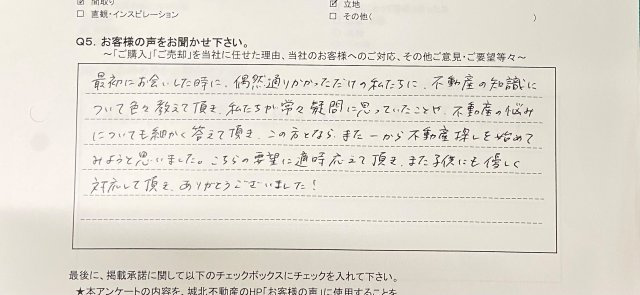 ☑ 間取り
☑ 立地
☐ 直観・インスピレーション
☐ その他(
)
Q5. お客様の声をお聞かせ下さい。
～「ご購入」「ご売却」を当社に任せた理由、当社のお客様へのご対応、その他ご意見・ご要望等々～
最初にお会いした時に、偶然通りかかっただけの私たちに、不動産の知識に
ついて色々教えて頂き、私たちが常々疑問に思っていたことや、不動産の悩み
についても細かく答えて頂き、この方となら、また一から不動産探しを始めて
みようと思いました。こちらの要望に適時応えて頂き、また子供にも優しく
対応して頂き、ありがとうございました!
最後に、掲載承諾に関して以下のチェックボックスにチェックを入れて下さい。
★本アンケートの内容を、城北不動産のHP「お客様の声」に使用することを